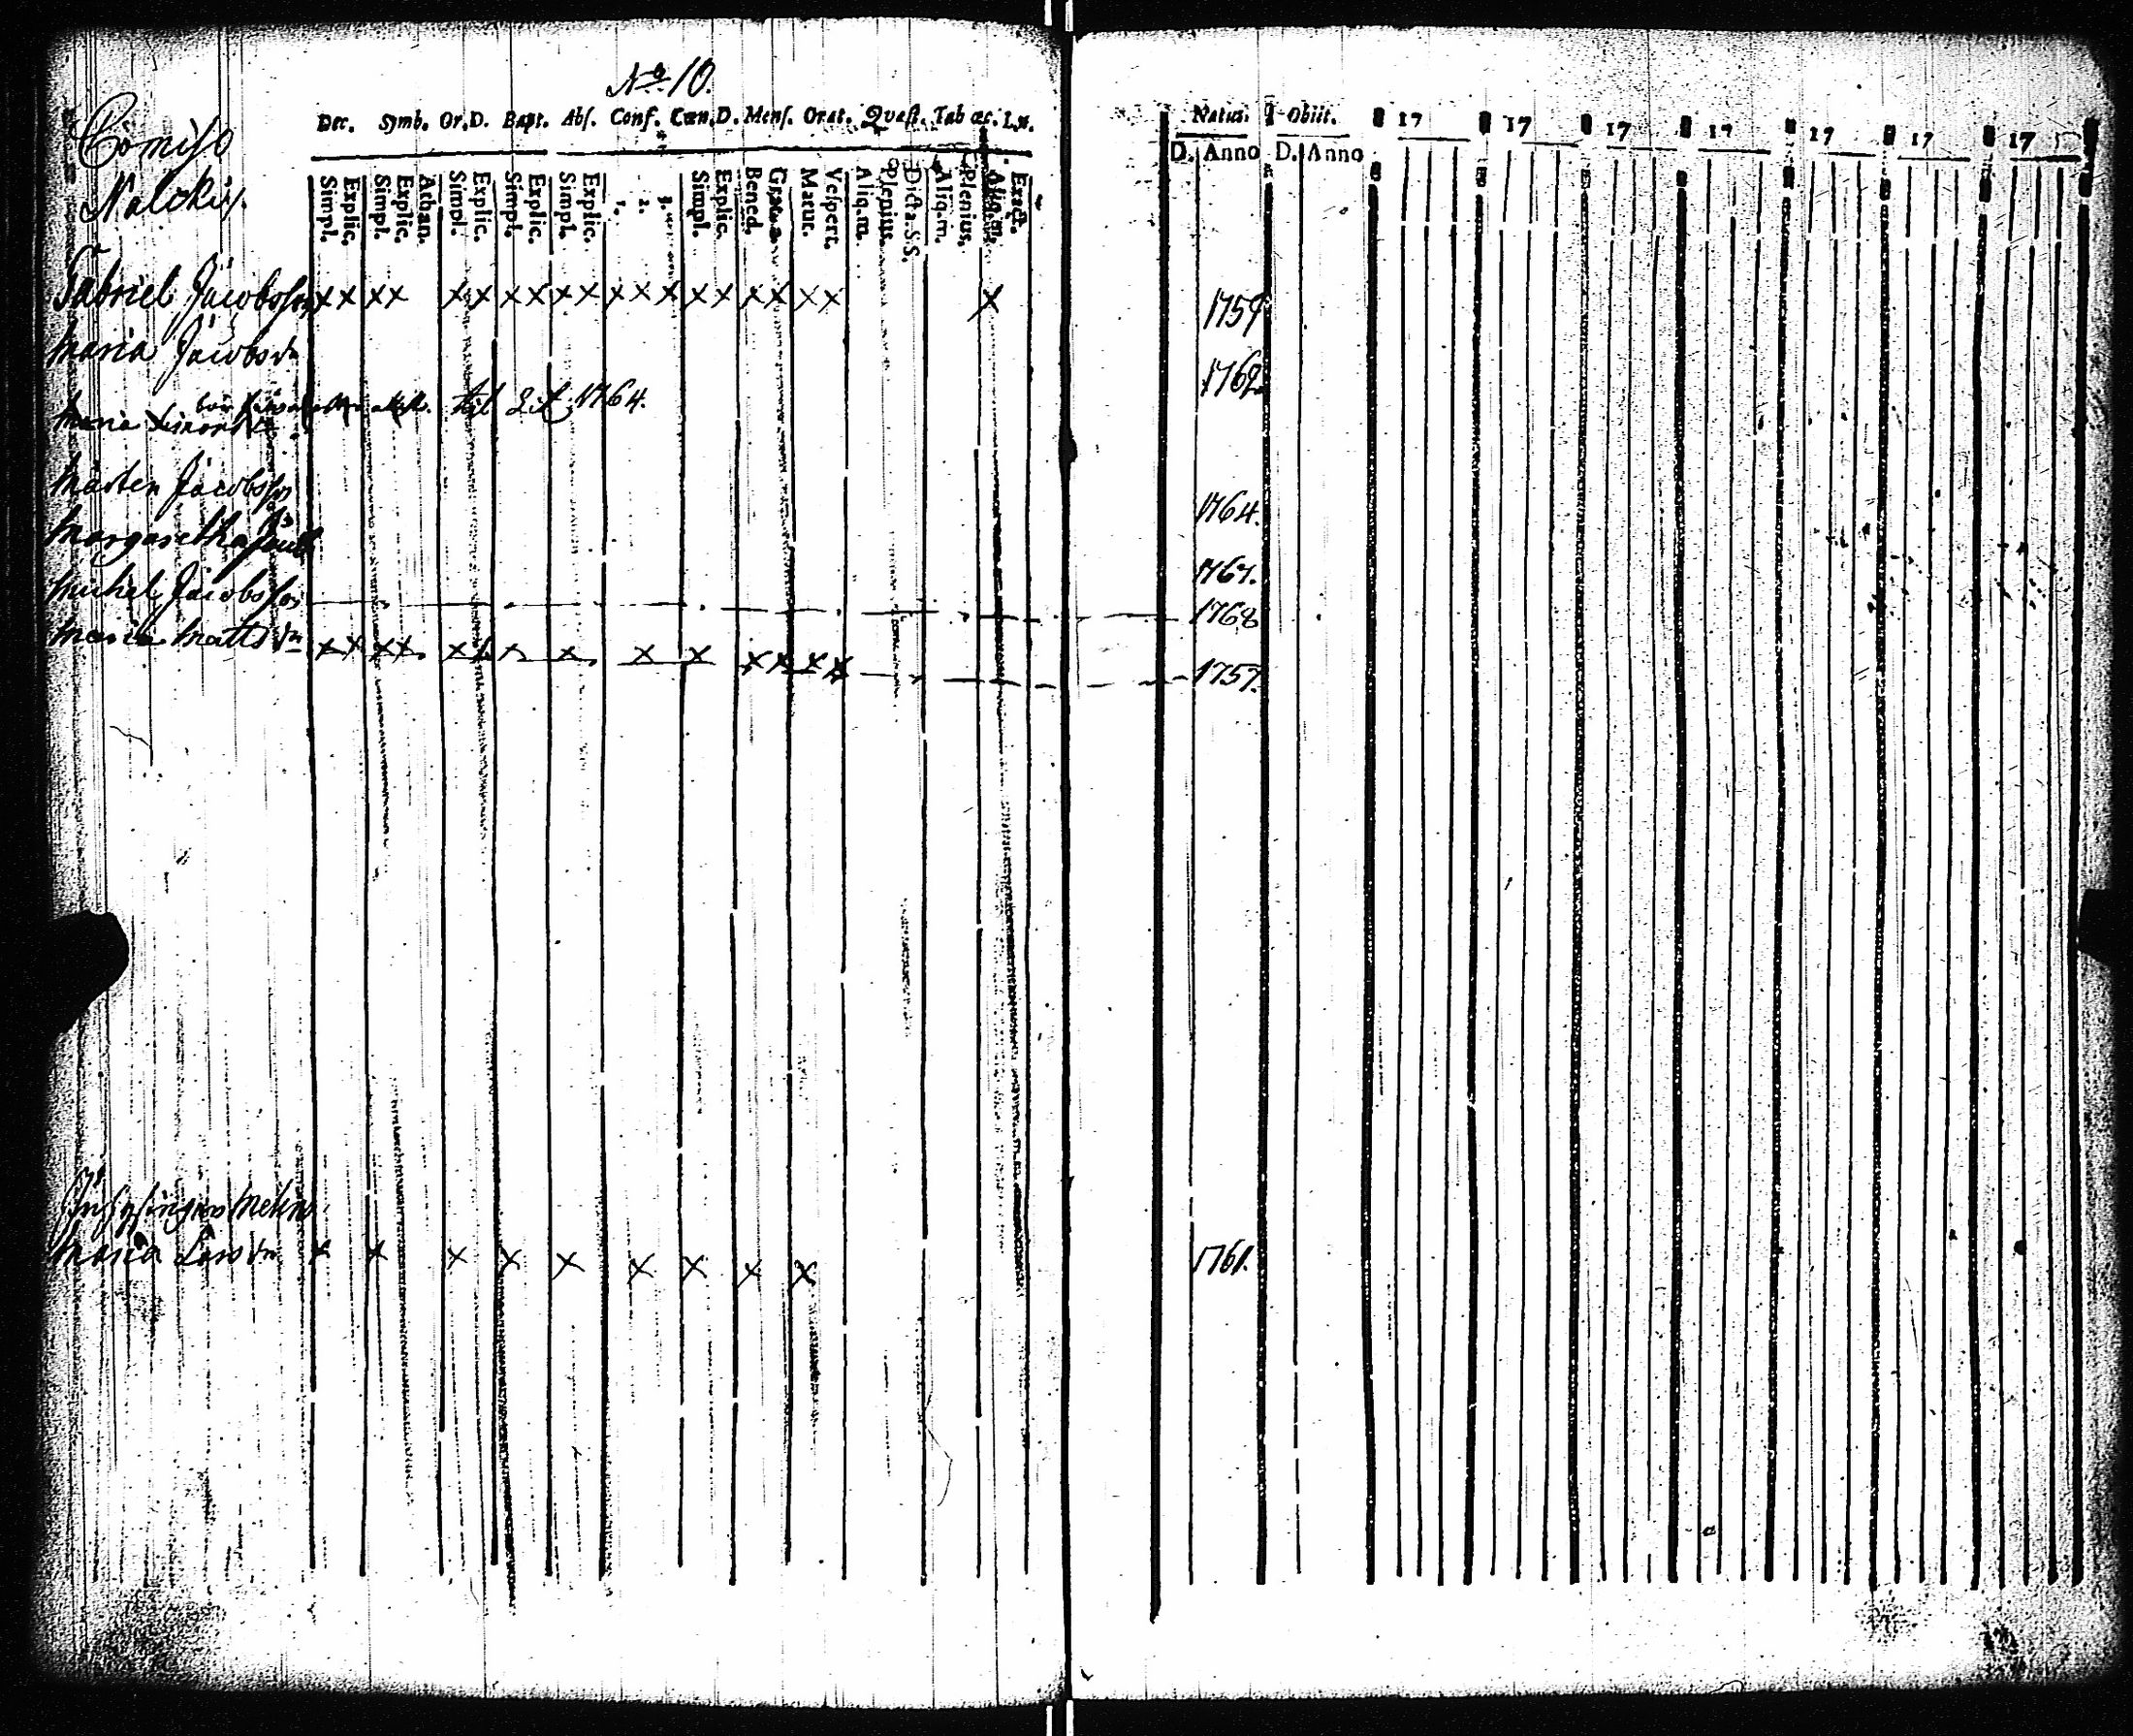 No 10.
Comiso
Nalckis.
Dec. Symb. Or.D. Bapt. Abs. Conf. Cœn.D. Mens. Orat. Quæst. Tab œc. Lx.
Simpl. Explic. Simpl. Explic. Athan. Simpl. Explic. Simpl. Explic. Simpl. Explic. 1. 2. 3. Simpl. Explic. Bened. Grat. Matut. Vespert. Aliq.m. Plenius. Dicta.S.S. Aliq.m. Plenius. Aliq.m. Exact.
Natus. Obiit. 17 17 17 17 17 17 17
D. Anno D. Anno
Gabriel Jacobsson x x x x x x x x x x x x x x x x x x x x 1759
Maria Jacobsdr 1762
til 1764.
Maria
Mårten Jacobsson 1764.
Margaretha Jacobs 1767.
Michel Jacobsson 1768
Maria Mattsdr x x x x x x x x x x x x x x 1757.
Maria Larsdr x x x x x x x x x 1761.